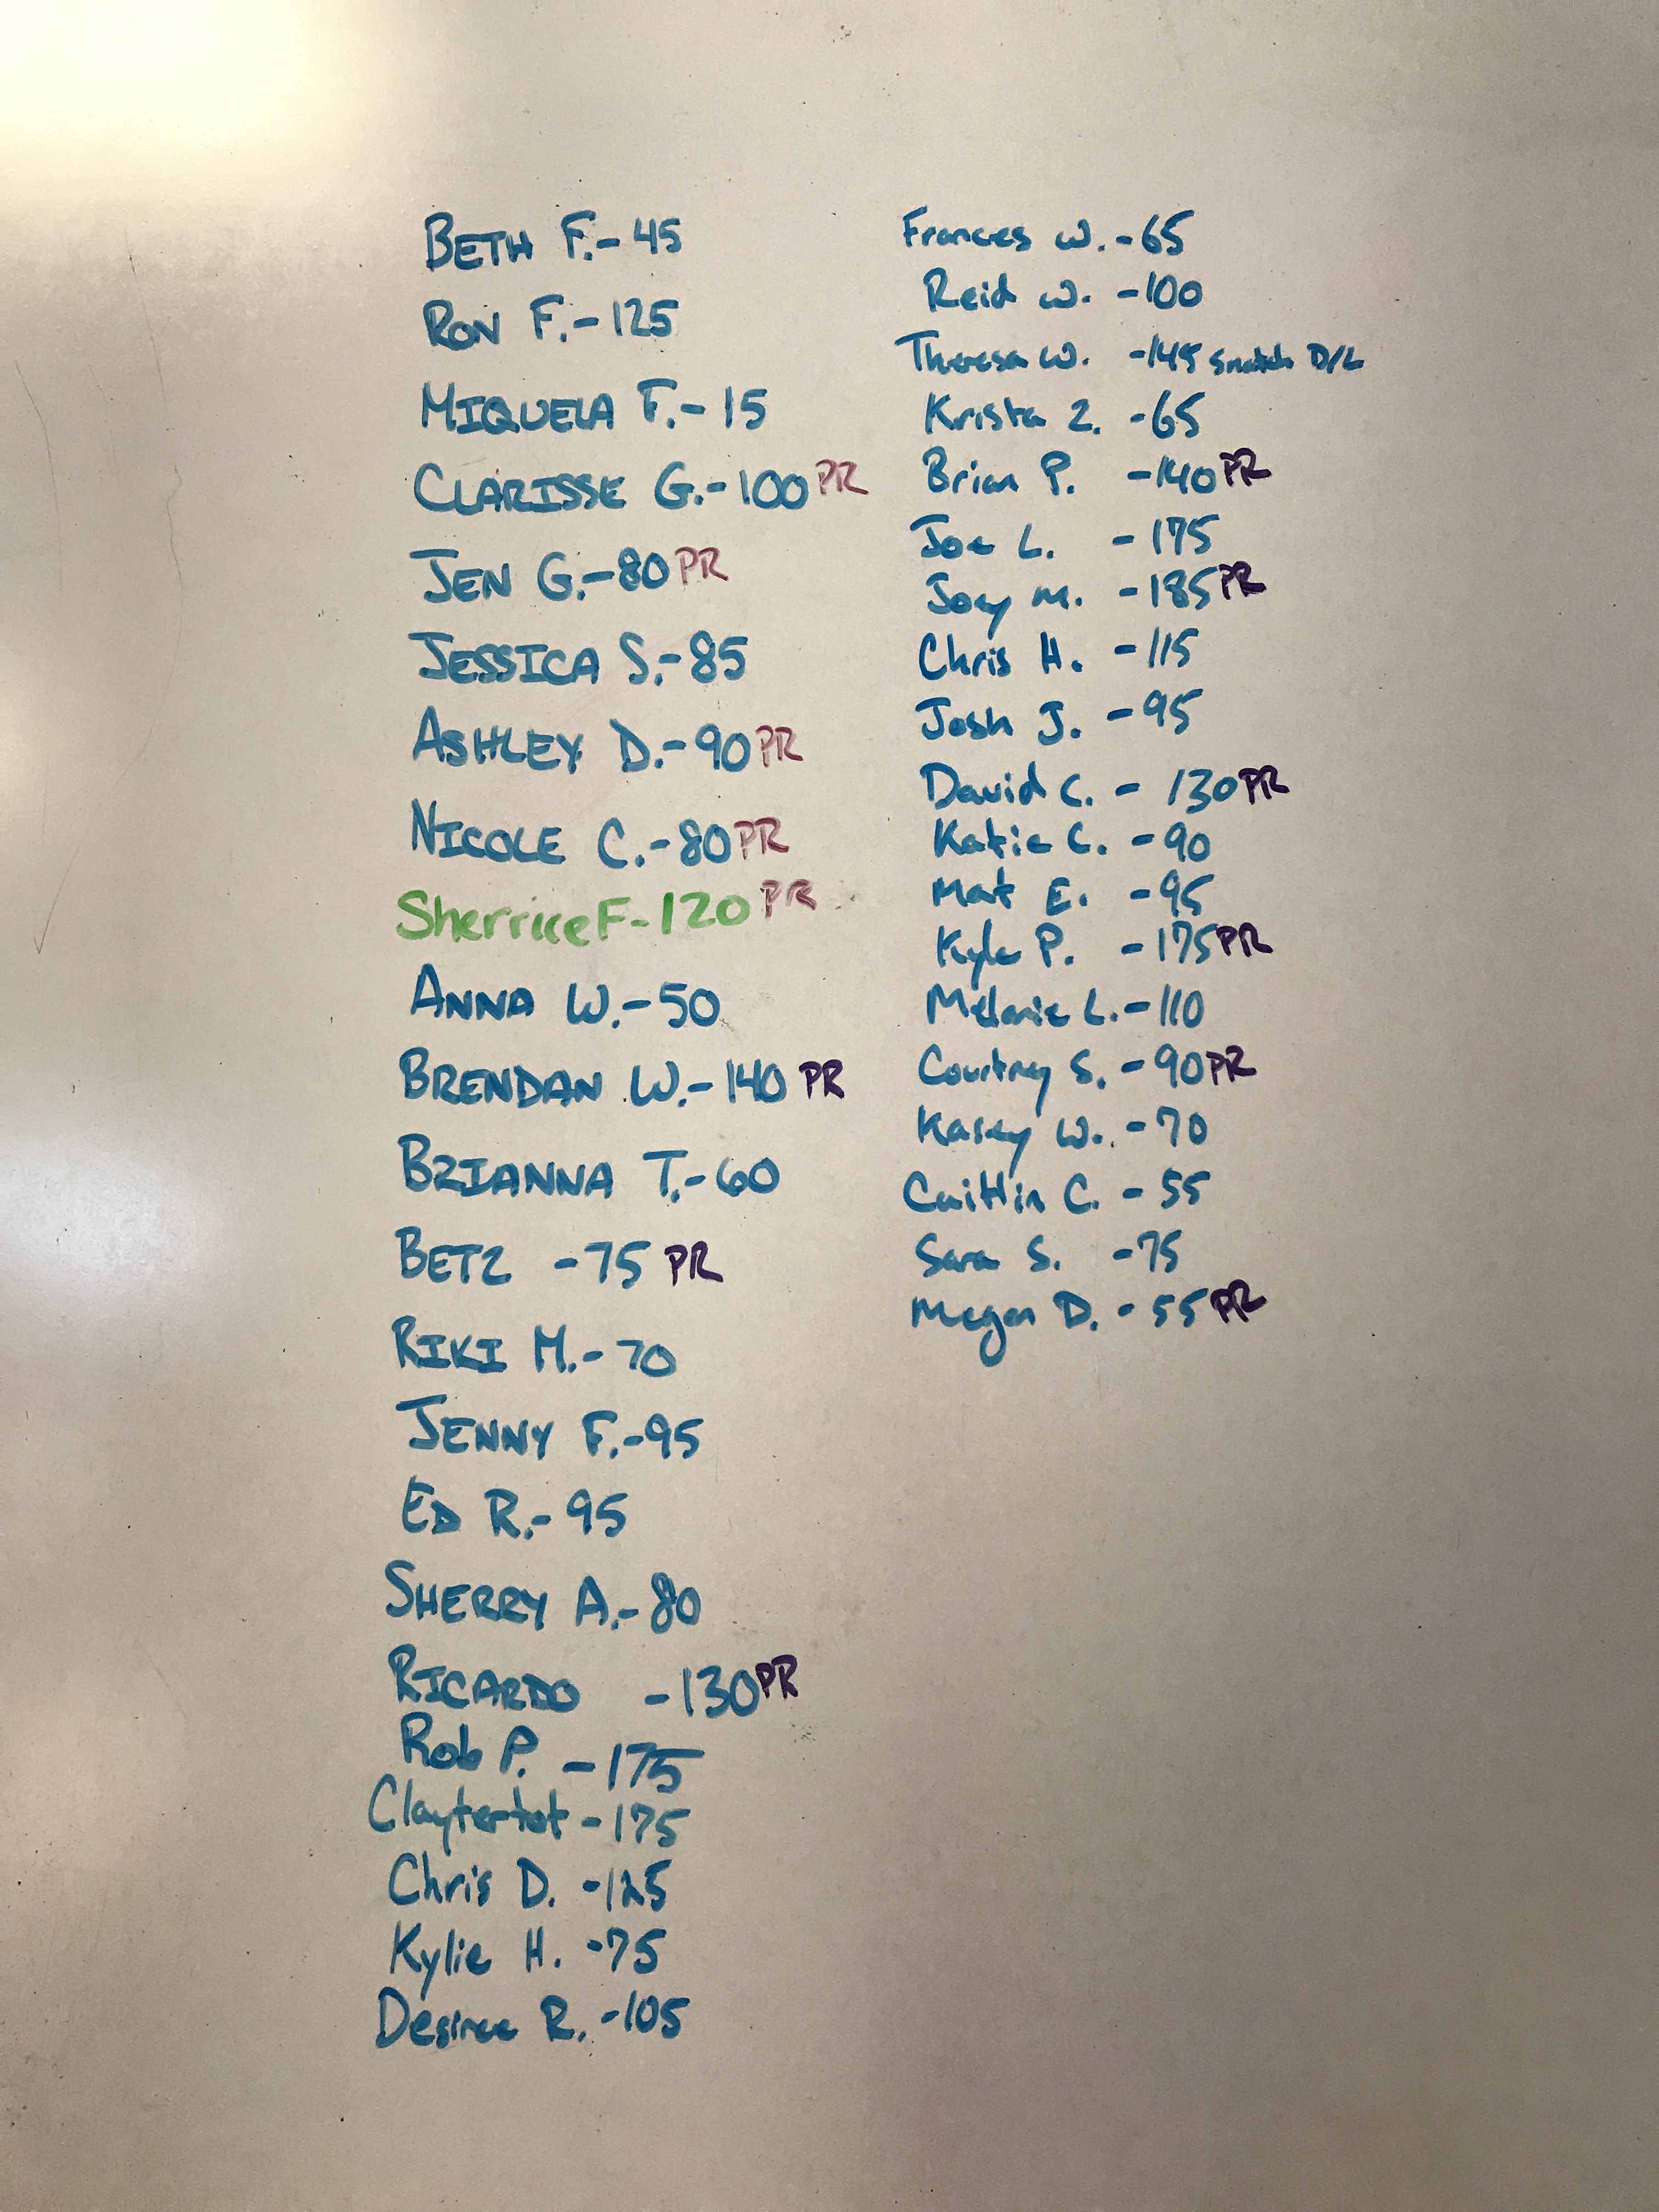 BETH F.-45
RON F.-125
MIQUELA F.-15
CLARISSE G.-100 PR
JEN G.-80 PR
JESSICA S.-85
ASHLEY D.-90 PR
NICOLE C.-80 PR
Sherrice F-120 PR
ANNA W.-50
BRENDAN W.-140 PR
BRIANNA T.-60
BETZ -75 PR
RIKI M.-70
JENNY F.-95
ED R.-95
SHERRY A.-80
RICARDO -130 PR
Rob P. -175
Claytertot -175
Chris D. -125
Kylie H. -75
Desiree R. -105
Frances W. -65
Reid W. -100
Theresa W. -145 Snatch D/L
Krista Z. -65
Brian P. -140 PR
Joe L. -175
Joey M. -185 PR
Chris H. -115
Josh J. -95
David C. - 130 PR
Katie C. -90
Mat E. -95
Kyle P. -175 PR
Melanie L. -110
Courtney S. -90 PR
Kasey W. -70
Caitlin C. -55
Sara S. -75
Megan D. -55 PR